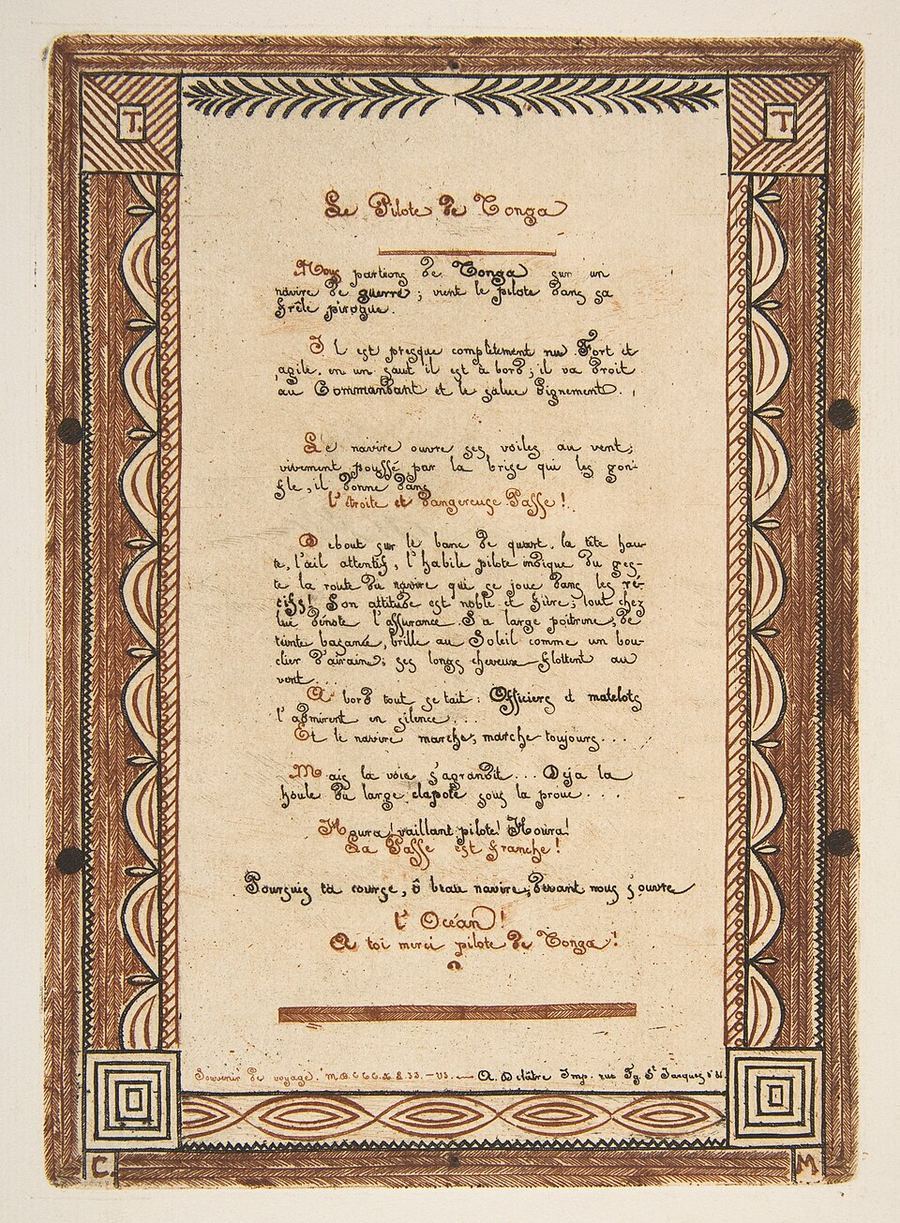 T.
T.
Le Pilote de Tonga
Nous partions de Tonga sur un
navire de guerre ; vient le pilote dans sa
frêle pirogue.
Il est presque complètement nu. Fort et
agile, en un saut il est à bord ; il va droit
au Commandant et le salue dignement.
Le navire ouvre ses voiles au vent ;
vivement poussé par la brise qui les gon-
fle, il donne dans
l'étroite et dangereuse Passe !
Debout sur le banc de quart, la tête hau-
te, l'œil attentif, l'habile pilote indique du ges-
te la route du navire qui se joue dans les ré-
cifs! Son attitude est noble et fière ; tout chez
lui dénote l'assurance. Sa large poitrine, de
teinte basanée, brille au Soleil comme un bou-
clier d'airain ; ses longs cheveux flottent au
vent....
A bord tout se tait : Officiers et matelots
l'admirent en silence...
Et le navire marche, marche toujours...
Mais la voie s'agrandit... Déja la
houle du large clapote sous la proue....
Houra! vaillant pilote! Houra!
La Passe est franche !
Poursuis ta course, ô beau navire, Devant nous s'ouvre
l'Océan !
A toi merci pilote de Tonga !
Souvenir de voyage. A. Delâtre Imp. rue Fg. St Jacques
C.
M.